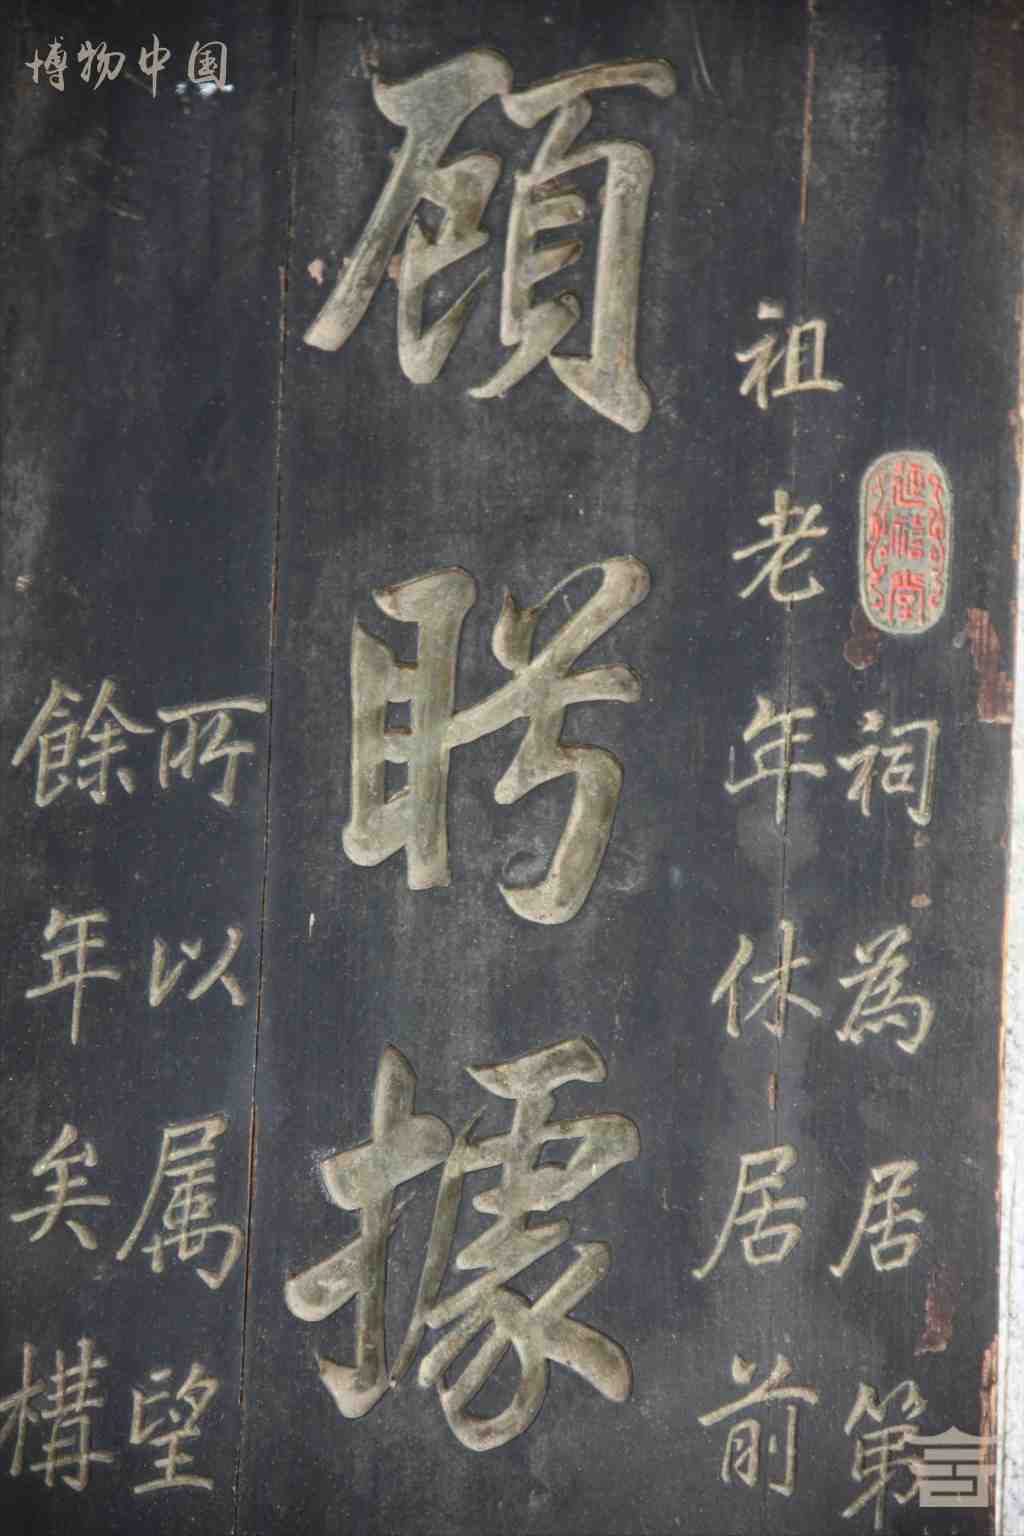 博物中国
祠為居第
祖老年休居前
顧盼據
所以属望
餘年矣構